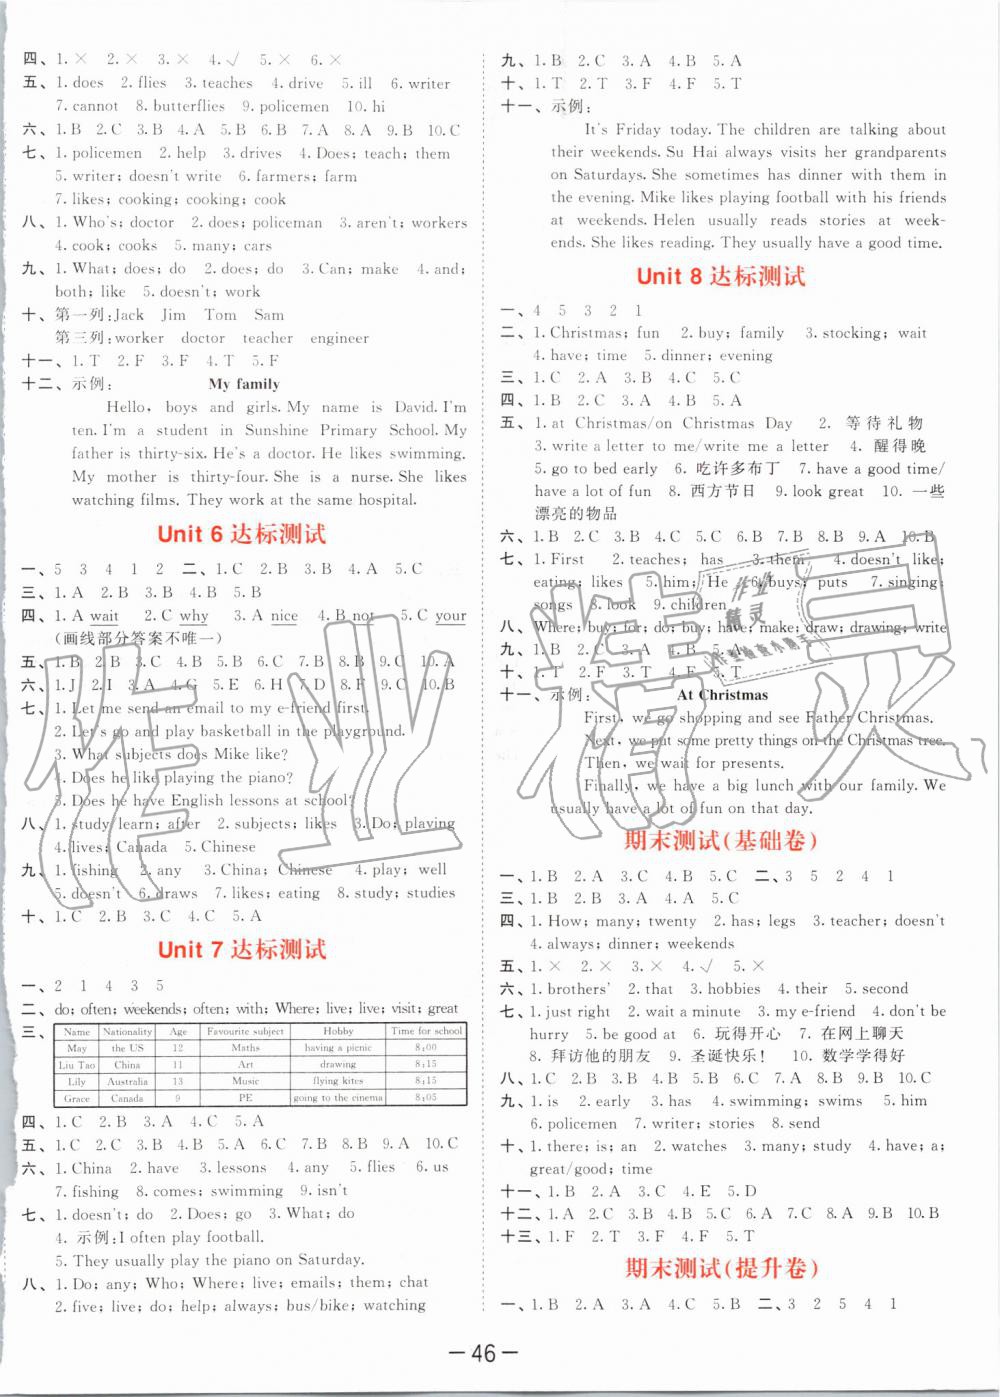 四、1.× 2.× 3.× 4.√ 5.× 6.×
五、1. does 2. flies 3. teaches 4. drive 5. ill 6. writer
7. cannot 8. butterflies 9. policemen 10. hi
六、1. B 2. C 3. B 4. A 5. B 6. B 7. A 8. A 9. B 10. C
七、1. policemen 2. help 3. drives 4. Does; teach; them
5. writer; doesn't write 6. farmers; farm
7. likes; cooking; cooking; cook
八、1. Who's; doctor 2. does; policeman 3. aren't; workers
4. cook; cooks 5. many; cars
九、1. What; does; do 2. does; do 3. Can; make 4. and;
both; like 5. doesn't; work
十、第一列:Jack Jim Tom Sam
第三列:worker doctor teacher engineer
十一、1. T 2. F 3. F 4. T 5. F
十二、示例: My family
Hello, boys and girls. My name is David. I'm
ten. I'm a student in Sunshine Primary School. My
father is thirty-six. He's a doctor. He likes swimming.
My mother is thirty-four. She is a nurse. She likes
watching films. They work at the same hospital.
Unit 6 达标测试
一、5 3 4 1 2 二、1. C 2. B 3. B 4. A 5. C
三、1. A 2. B 3. B 4. B 5. B
四、1. A wait 2. C why 3. A nice 4. B not 5. C your
(画线部分答案不唯一)
五、1. B 2. B 3. B 4. A 5. C 6. B 7. B 8. B 9. C 10. A
六、1. J 2. I 3. A 4. G 5. E 6. H 7. D 8. F 9. C 10. B
七、1. Let me send an email to my e-friend first.
2. Let's go and play basketball in the playground.
3. What subjects does Mike like?
4. Does he like playing the piano?
5. Does he have English lessons at school?
八、1. study/learn; after 2. subjects; likes 3. Do; playing
4. lives; Canada 5. Chinese
九、1. fishing 2. any 3. China; Chinese 4. play; well
5. doesn't 6. draws 7. likes; eating 8. study; studies
十、1. C 2. B 3. C 4. C 5. A
Unit 7 达标测试
一、2 1 4 3 5
二、do; often; weekends; often; with; Where; live; live; visit; great
三、Name Nationality Age Favourite subject Hobby Time for school
May the US 12 Maths having a picnic 8:00
Liu Tao China 11 Art drawing 8:15
Lily Australia 13 Music flying kites 8:15
Grace Canada 9 PE going to the cinema 8:05
四、1. C 2. B 3. A 4. C 5. A
五、1. C 2. C 3. B 4. B 5. A 6. C 7. B 8. B 9. A 10. C
六、1. China 2. have 3. lessons 4. any 5. flies 6. us
7. fishing 8. comes; swimming 9. isn't
七、1. doesn't; do 2. Does; go 3. What; do
4. 示例:I often play football.
5. They usually play the piano on Saturday.
八、1. Do; any; Who; Where; live; emails; them; chat
2. five; live; do; help; always; bus/bike; watching
九、1. B 2. C 3. A 4. B 5. A
十、1. T 2. T 3. F 4. F 5. T
十一、示例:
It's Friday today. The children are talking about
their weekends. Su Hai always visits her grandparents
on Saturdays. She sometimes has dinner with them in
the evening. Mike likes playing football with his friends
at weekends. Helen usually reads stories at week-
ends. She likes reading. They usually have a good time.
Unit 8 达标测试
一、4 5 3 2 1
二、1. Christmas; fun 2. buy; family 3. stocking; wait
4. have; time 5. dinner; evening
三、1. C 2. A 3. B 4. C 5. C
四、1. B 2. C 3. A 4. B 5. A
五、1. at Christmas/on Christmas Day 2. 等待礼物
3. write a letter to me/write me a letter 4. 醒得晚
5. go to bed early 6. 吃许多布丁 7. have a good time/
have a lot of fun 8. 西方节日 9. look great 10. 一些
漂亮的物品
六、1. B 2. C 3. C 4. A 5. C 6. B 7. B 8. B 9. A 10. B
七、1. First 2. teaches; has 3. them 4. doesn't like;
eating; likes 5. him; He 6. buys; puts 7. singing;
songs 8. look 9. children
八、Where; buy; for; do; buy; have; make; draw; drawing; write
九、1. B 2. C 3. C 4. B 5. A
十、1. T 2. F 3. T 4. F 5. T
十一、示例: At Christmas
First, we go shopping and see Father Christmas.
Next, we put some pretty things on the Christmas tree.
Then, we wait for presents.
Finally, we have a big lunch with our family. We
usually have a lot of fun on that day.
期末测试(基础卷)
一、1. B 2. A 3. C 4. B 5. C 二、3 5 2 4 1
三、1. B 2. C 3. B 4. A 5. C
四、1. How; many; twenty 2. has; legs 3. teacher; doesn't
4. always; dinner; weekends
五、1.× 2.× 3.× 4.√ 5.×
六、1. brothers' 2. that 3. hobbies 4. their 5. second
七、1. just right 2. wait a minute 3. my e-friend 4. don't be
hurry 5. be good at 6. 玩得开心 7. 在网上聊天
8. 拜访他的朋友 9. 圣诞快乐! 10. 数学学得好
八、1. C 2. B 3. C 4. A 5. B 6. A 7. A 8. C 9. C 10. C
九、1. is 2. early 3. has 4. swimming; swims 5. him
6. policemen 7. writer; stories 8. send
十、1. there; is; an 2. watches 3. many; study 4. have; a;
great/good; time
十一、1. B 2. A 3. C 4. E 5. D
十二、1. A 2. C 3. B 4. B 5. C 6. B 7. A 8. A 9. B 10. B
十三、1. F 2. T 3. F 4. F 5. T
期末测试(提升卷)
一、1. B 2. A 3. A 4. C 5. B 二、3 2 5 4 1
— 46 —